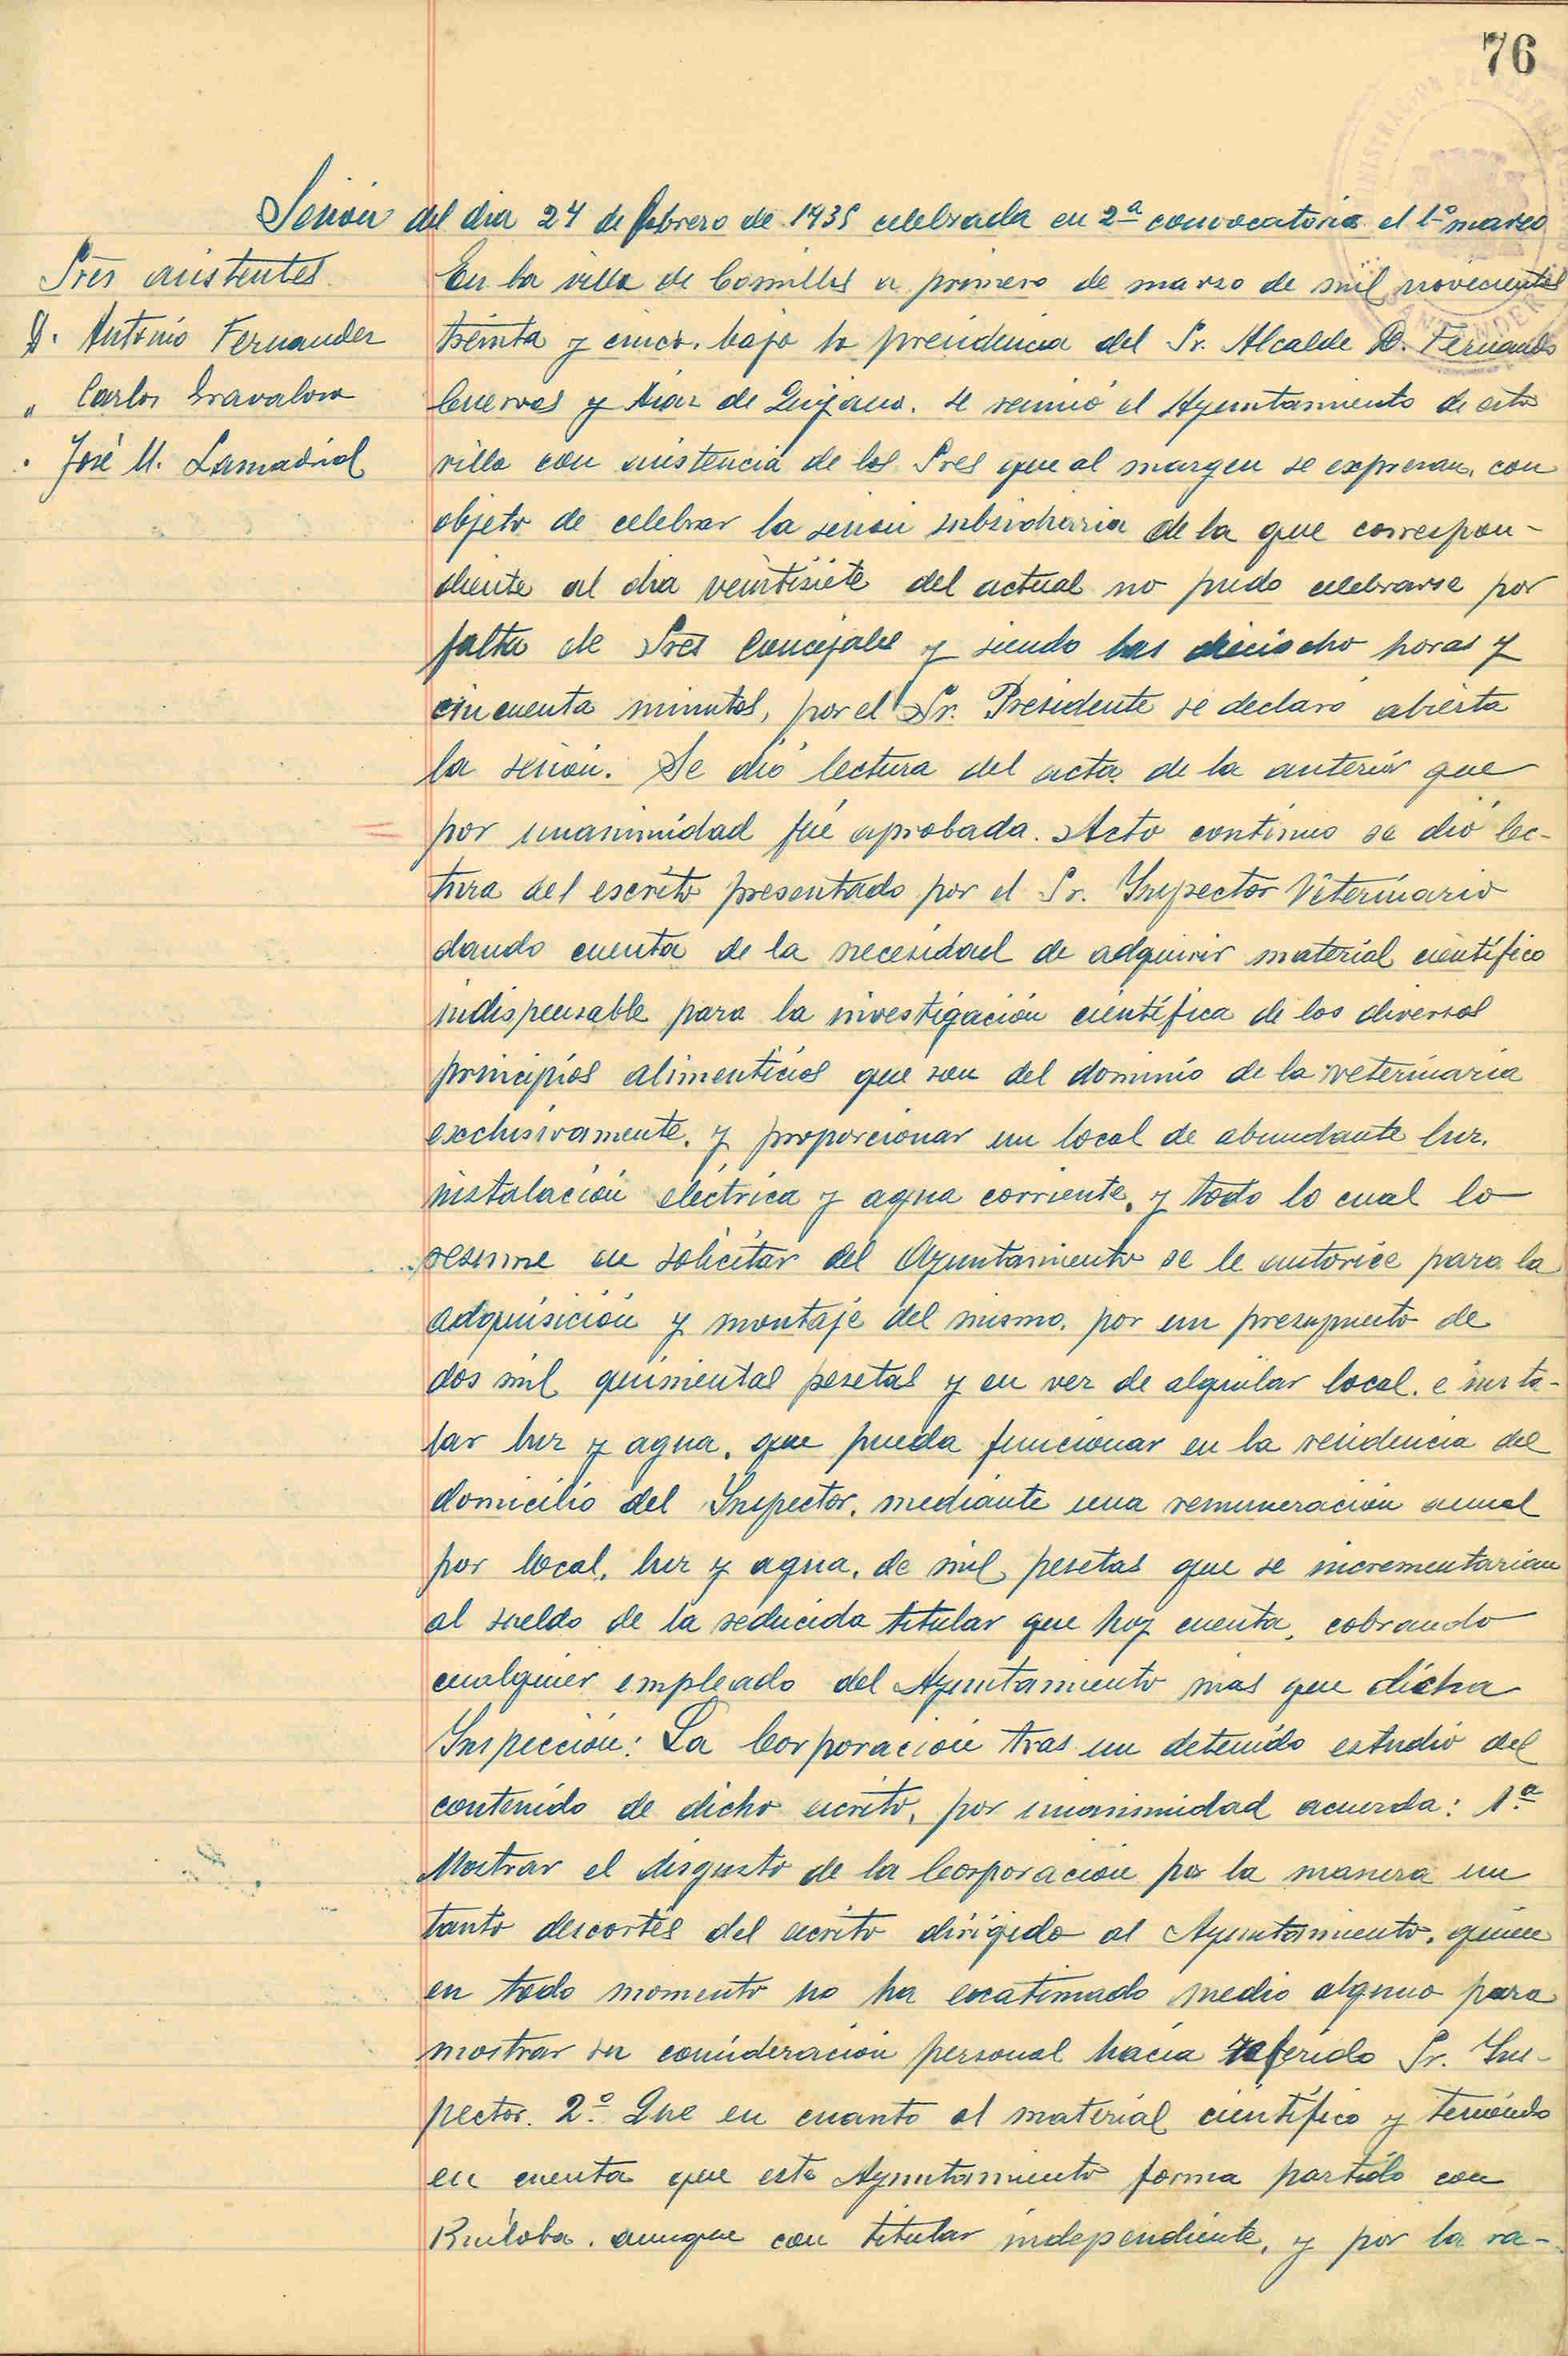 76
Sesión del dia 27 de febrero de 1935 celebrada en 2ª convocatoria el 1º marzo
Sres asistentes.
D. Antonio Fernandez
" Carlos
" José M. Lamadrid
En la villa de Comillas a primero de marzo de mil novecientos
treinta y cinco, bajo la presidencia del Sr. Alcalde D. Fernando
Cuervas y Diaz de Quijano, se reunió el Ayuntamiento de esta
villa con asistencia de los Sres que al margen se expresan, con
objeto de celebrar la sesion subsidiaria de la que correspon-
diente al dia veintisiete del actual no pudo celebrarse por
falta de Sres Concejales y siendo las dieciocho horas y
cincuenta minutos, por el Sr. Presidente se declaró abierta
la sesion. Se dió lectura del acta de la anterior que
por unanimidad fué aprobada. Acto continuo se dió lec-
tura del escrito presentado por el Sr. Inspector Veterinario
dando cuenta de la necesidad de adquirir material científico
indispensable para la investigación científica de los diversos
principios alimenticios que son del dominio de la veterinaria
exclusivamente, y proporcionar un local de abundante luz,
instalación eléctrica y agua corriente, y todo lo cual lo
resume en solicitar del Ayuntamiento se le autorice para la
adquisición y montaje del mismo, por un presupuesto de
dos mil quinientas pesetas y en vez de alquilar local, e insta-
lar luz y agua, que pueda funcionar en la residencia del
domicilio del Inspector, mediante una remuneración anual
por local, luz y agua, de mil pesetas que se incrementarian
al sueldo de la reducida titular que hoy cuenta, cobrando
cualquier empleado del Ayuntamiento mas que dicha
Inspección: La Corporación tras un detenido estudio del
contenido de dicho escrito, por unanimidad acuerda: 1ª
Mostrar el disgusto de la Corporación por la manera un
tanto descortés del escrito dirigido al Ayuntamiento, quien
en todo momento no ha escatimado medio alguno para
mostrar su consideración personal hacia referido Sr. Ins-
pector. 2º Que en cuanto al material científico y teniendo
en cuenta que este Ayuntamiento forma partido con
Ruiloba, aunque con titular independiente, y por la ra-